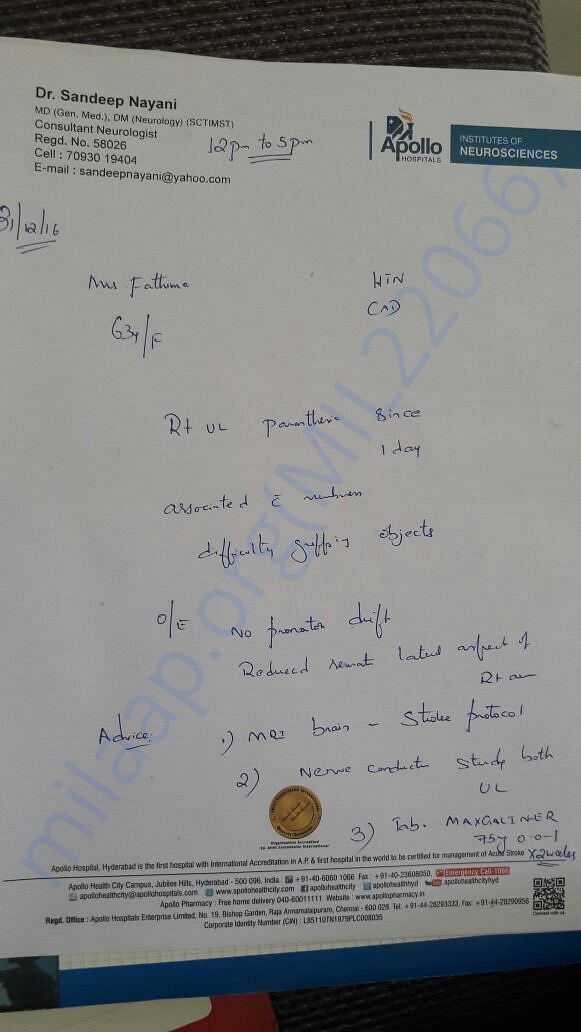 Dr. Sandeep Nayani
MD (Gen. Med.), DM (Neurology) (SCTIMST)
Consultant Neurologist
Regd. No. 58026
Cell : 70930 19404
E-mail : sandeepnayani@yahoo.com
12pm to 5pm
Apollo
HOSPITALS
INSTITUTES OF
NEUROSCIENCES
31/12/16
Mrs Fathima
63y/F
HTN
CAD
Rt UL since
1 day
associated c̄
difficulty objects
O/E No pronator drift
Reduced lateral aspect of
Rt
Advice: 1) MRI brain - Stroke protocol
2) Nerve Study both
UL
3) Tab. MAXGALINER
75 0-0-1
x2weeks
Organization Accredited
by Joint Commission International
Apollo Hospital, Hyderabad is the first hospital with International Accreditation in A.P. & first hospital in the world to be certified for management of Acute Stroke
Apollo Health City Campus, Jubilee Hills, Hyderabad - 500 096, India. +91-40-6060 1066 Fax : +91-40-23608050, Emergency Call-1066
apollohealthcity@apollohospitals.com www.apollohealthcity.com apollohealthcity apollohealthhyd You Tube apollohealthcityhyd
Apollo Pharmacy : Free home delivery 040-60011111 Website : www.apollopharmacy.in
Regd. Office : Apollo Hospitals Enterprise Limited, No. 19, Bishop Garden, Raja Annamalaipuram, Chennai - 600 028. Tel: +91-44-28293333, Fax: +91-44-28290956
Corporate Identity Number (CIN) : L85110TN1979PLC008035
Connect with us
milaap.org(MIL22066)